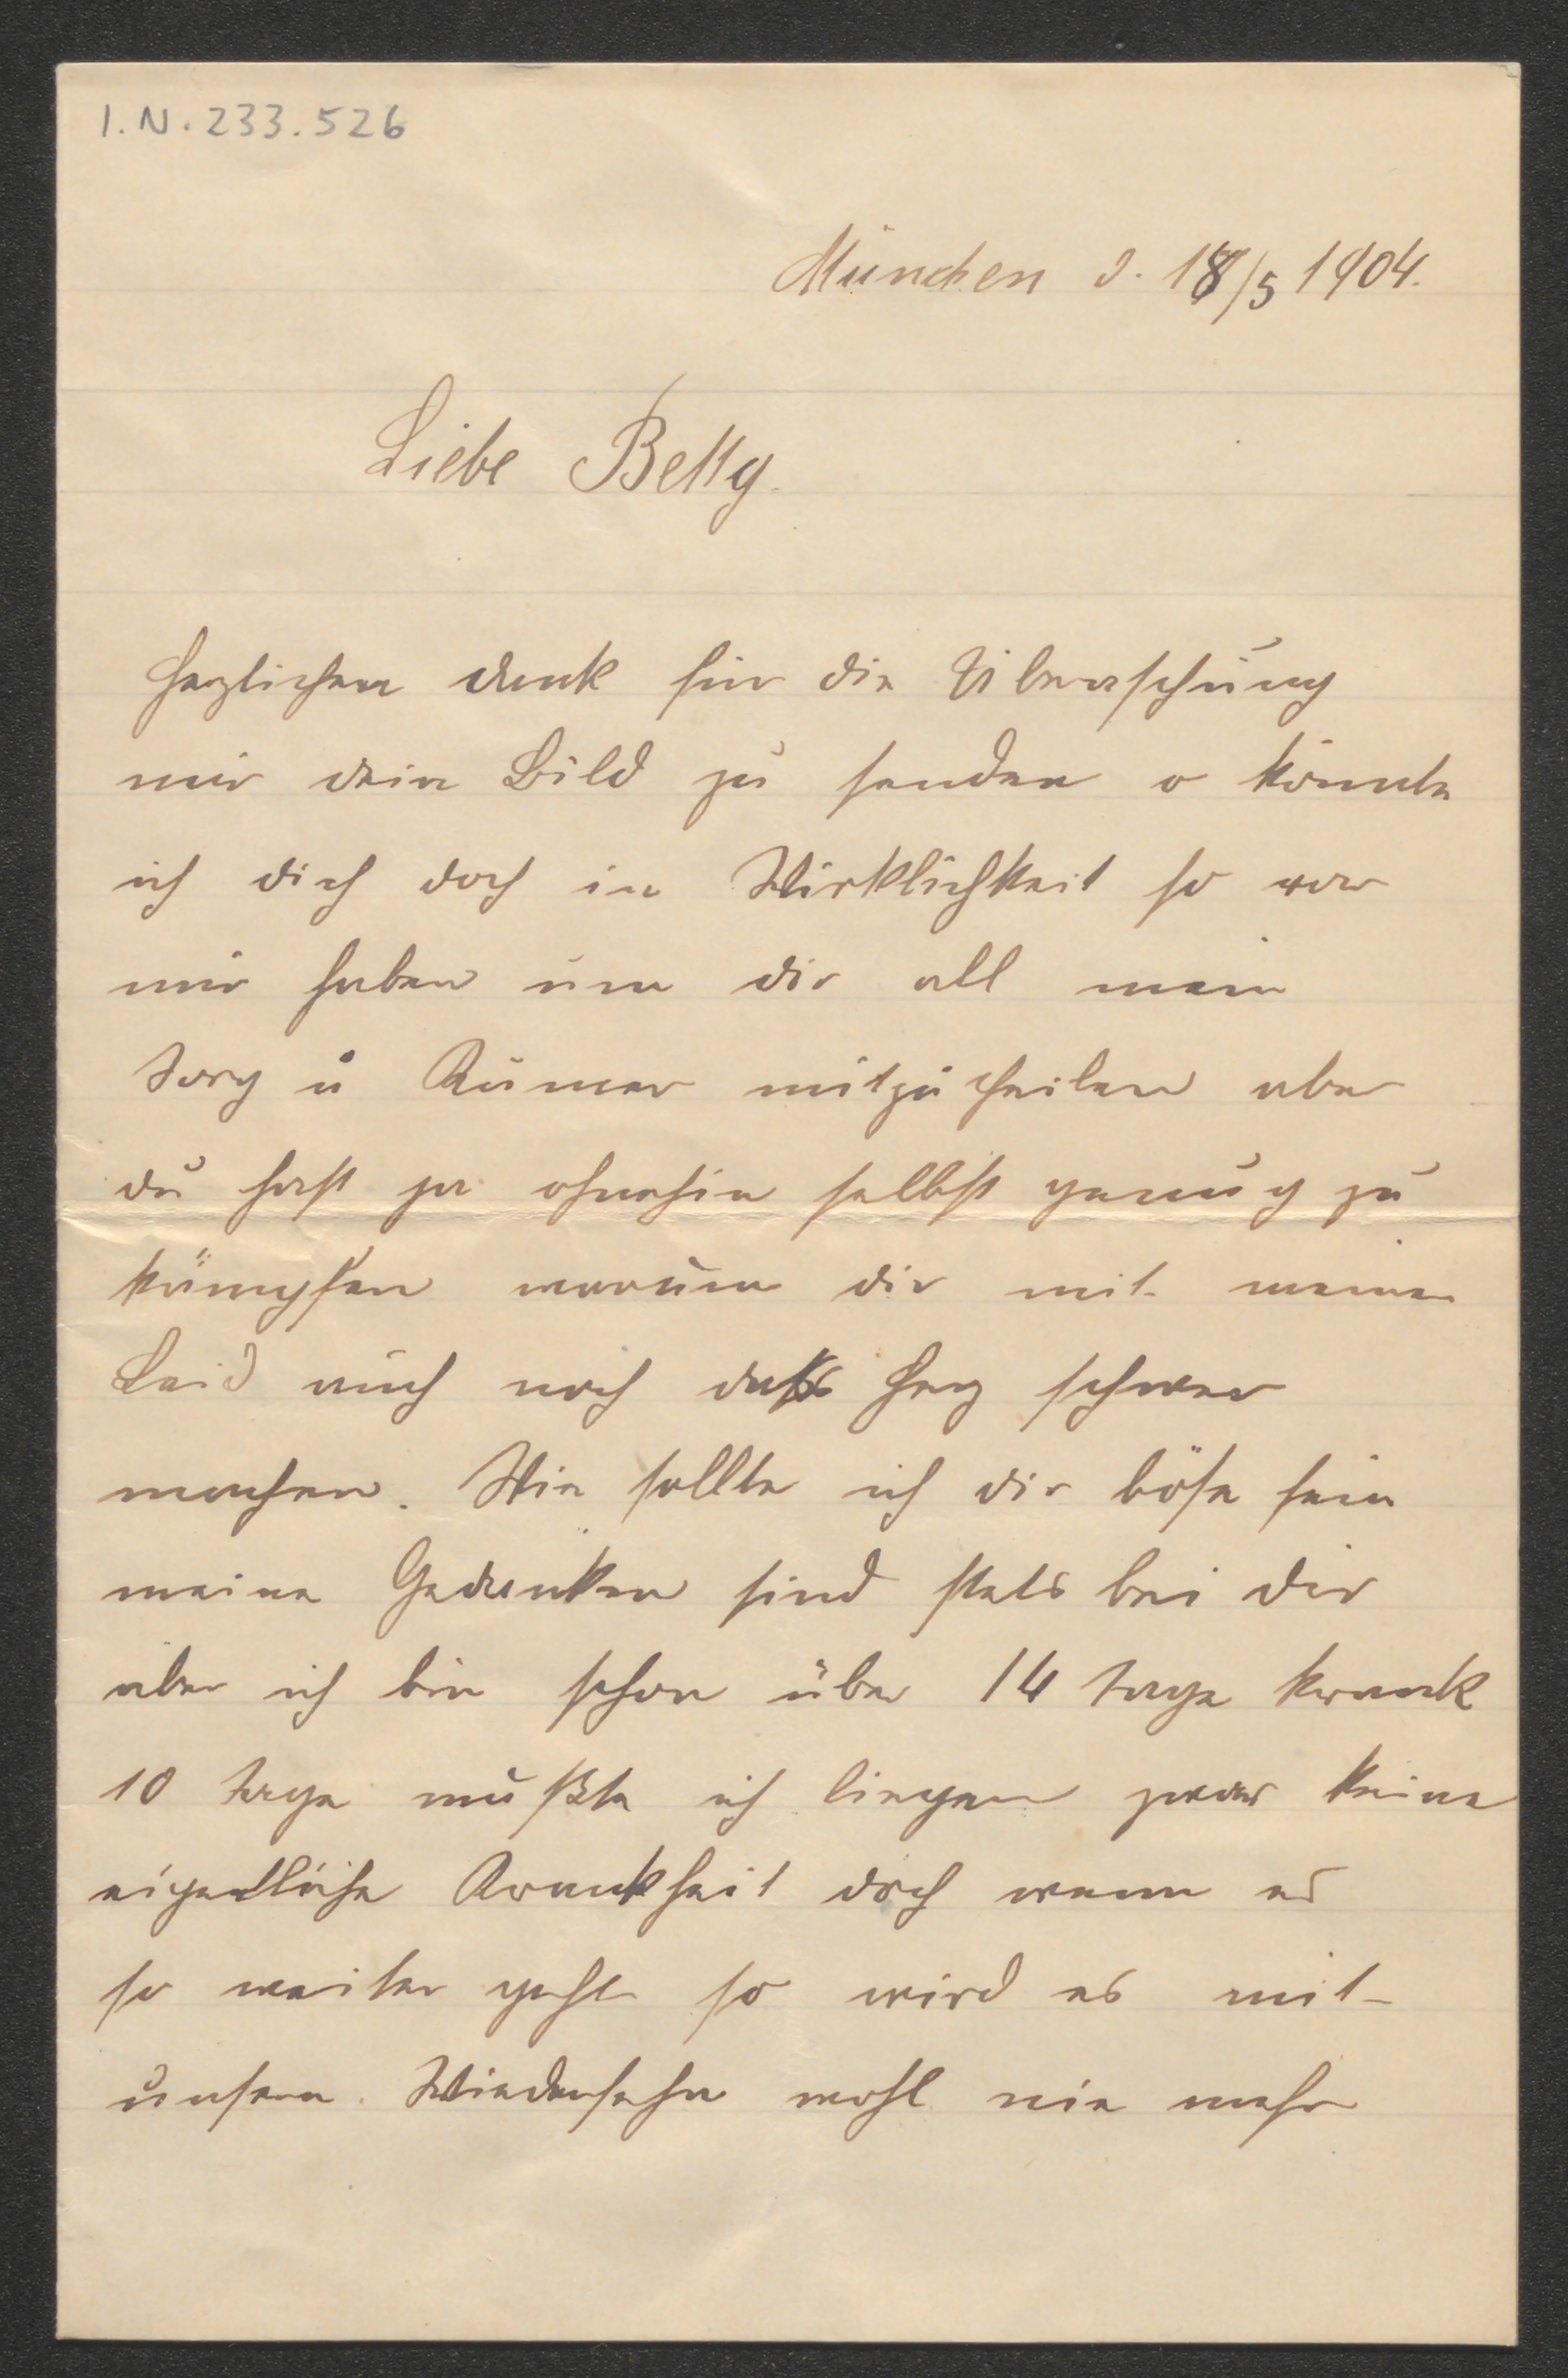 I.N. 233.526
München d. 18/5 1904.
Liebe Betty
Herzlichen dank für die Überaschung
mir dein Bild zu senden o könnte
ich dich doch in Wirklichkeit so vor
mir haben um dir all mein
Sorg u Kumer mitzutheilen aber
du hast ja ohnehin selbst genug zu
kämpfen warum dir mit meinen
Leid auch noch das Herz schwer
machen. Wie sollte ich dir böse sein
meine Gedanken sind stets bei dir
aber ich bin schon über 14 tage krank
10 tage mußte ich liegen zwar keine
eigendliche Krankheit doch wenn es
so weiter geht so wird es mit
unsern Wiedersehn wohl nie mehr